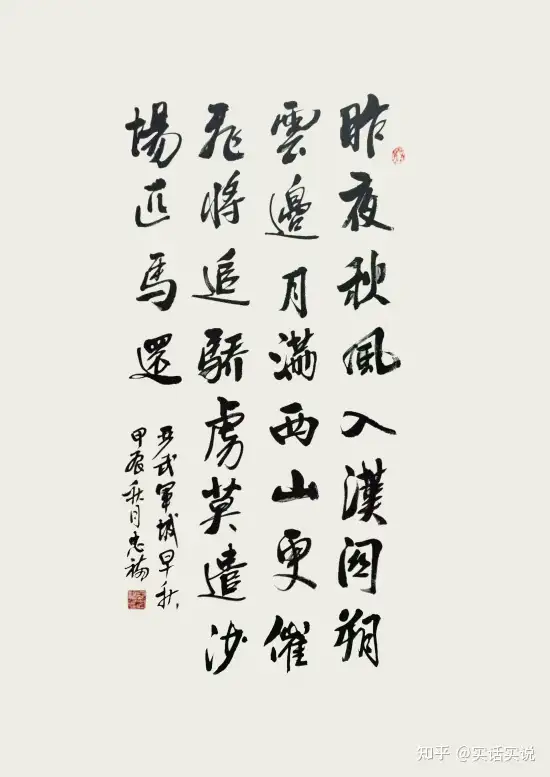 昨夜秋風入漢関朔
雲邊月滿西山更催
飛將追驕虜莫遣沙
場匹馬還
严武軍城早秋
甲辰秋月
知乎 @实话实说